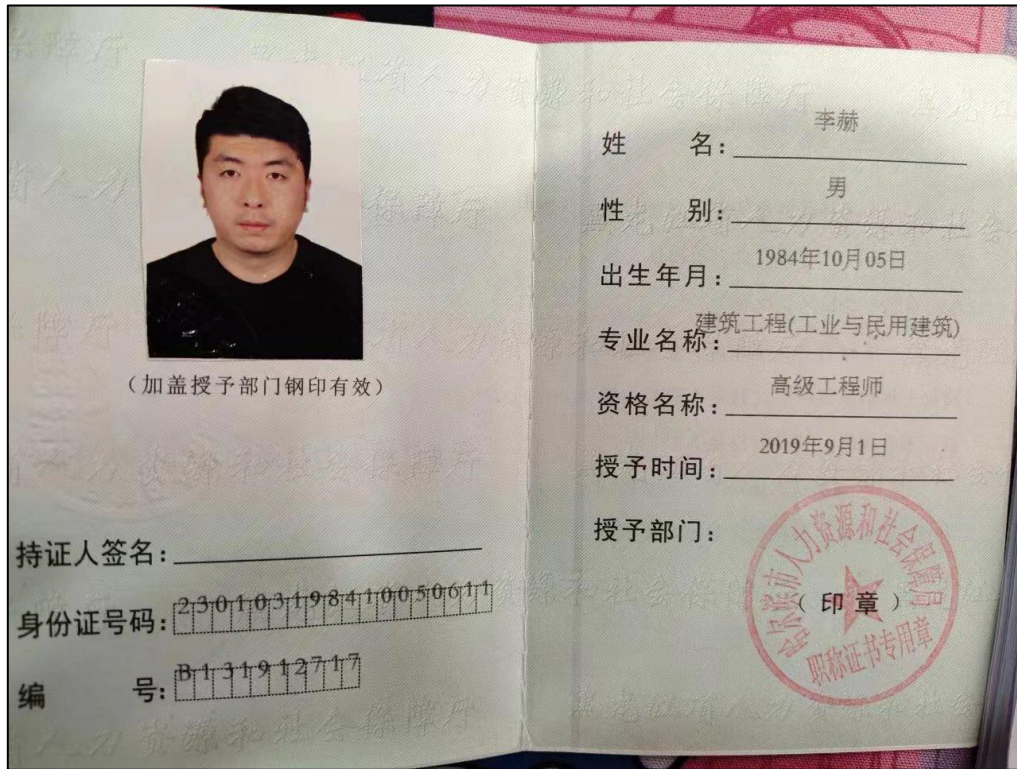 (加盖授予部门钢印有效)
持证人签名:
身份证号码: 230103198410050611
编 号: B131912717
姓 名: 李赫
性 别: 男
出生年月: 1984年10月05日
专业名称: 建筑工程(工业与民用建筑)
资格名称: 高级工程师
授予时间: 2019年9月1日
授予部门:
哈尔滨市人力资源和社会保障局
(印章)
职称证书专用章
黑龙江省人力资源和社会保障厅